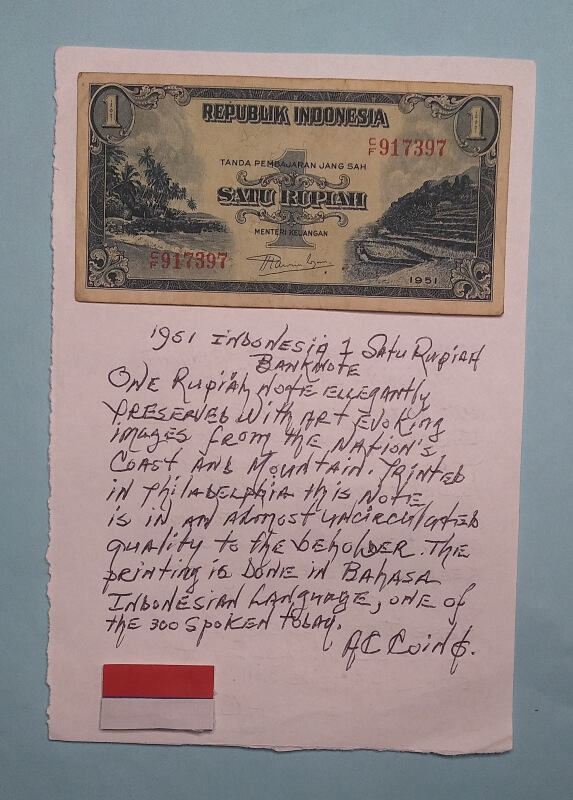 1
REPUBLIK INDONESIA
1
C/F 917397
TANDA PEMBAJARAN JANG SAH
1
SATU RUPIAH
MENTERI KEUANGAN
C/F 917397
1951
1951 INDONESIA 1 SATU RUPIAH
BANKNOTE
ONE RUPIAH NOTE ELLEGANTLY
PRESERVED WITH ART EVOKING
IMAGES FROM THE NATION'S
COAST AND MOUNTAIN. PRINTED
IN PHILADELPHIA THIS NOTE
IS IN AN ALMOST UNCIRCULATED
QUALITY TO THE BEHOLDER. THE
PRINTING IS DONE IN BAHASA
INDONESIAN LANGUAGE, ONE OF
THE 300 SPOKEN TODAY.
AC COIN